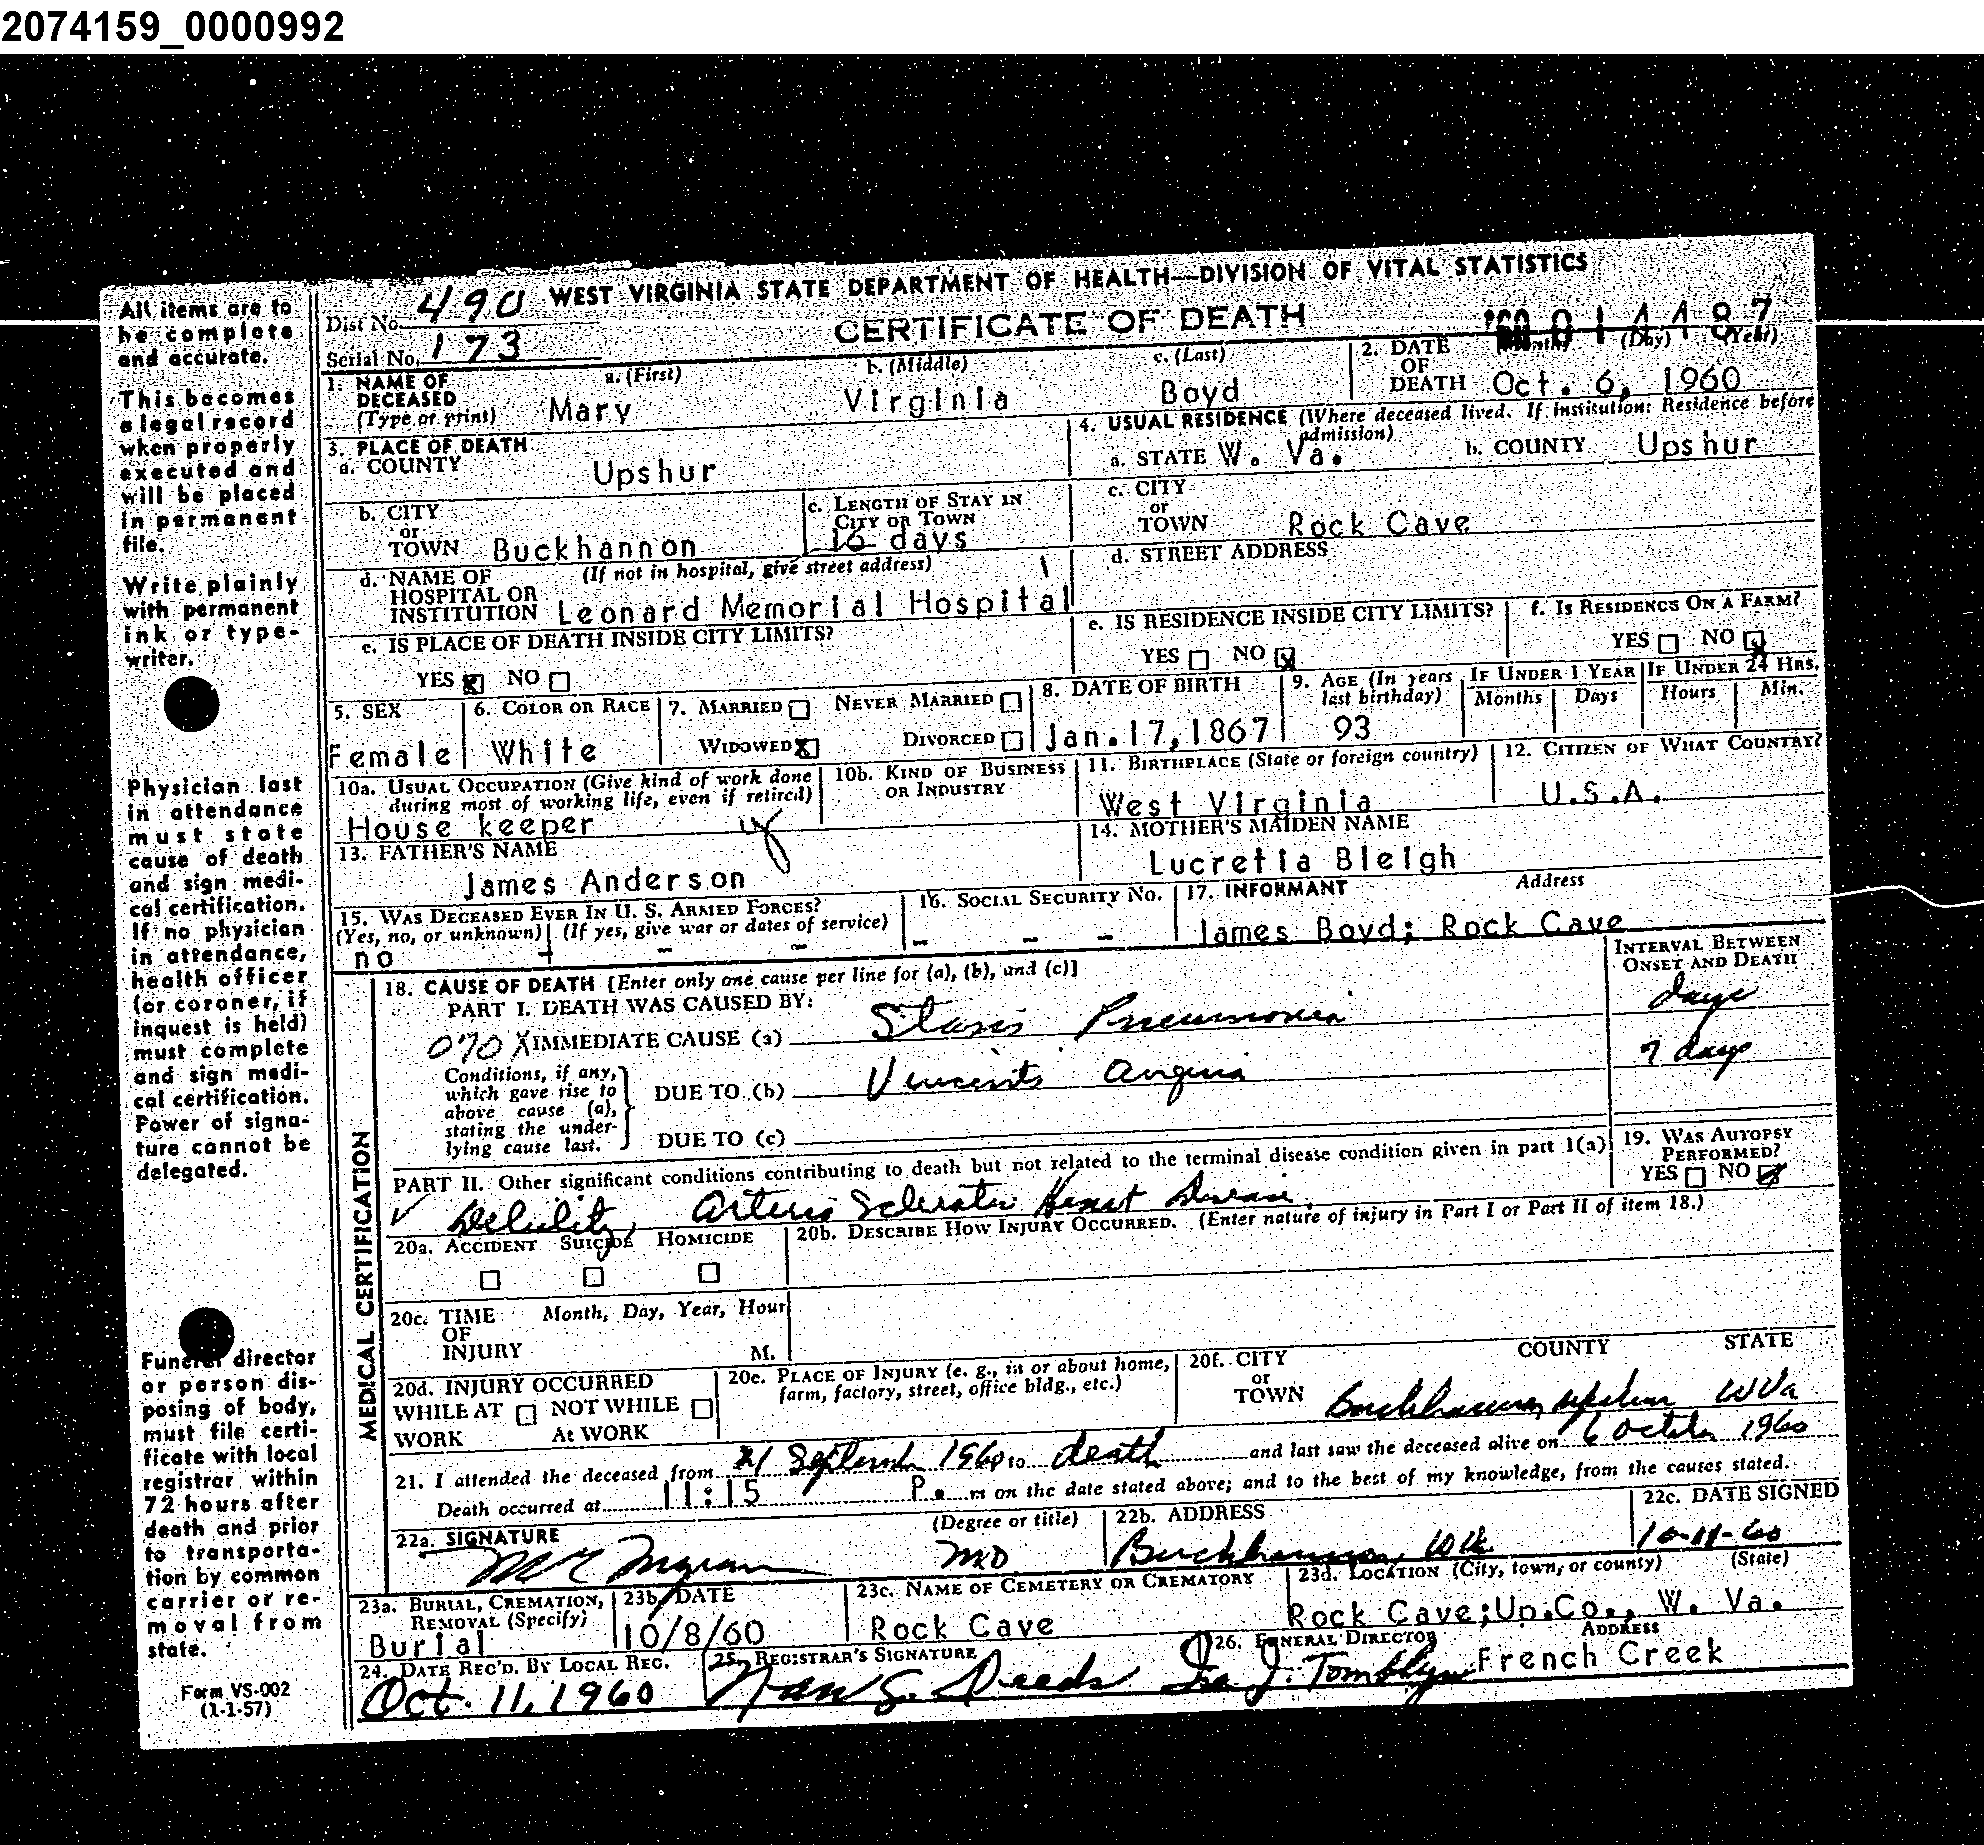 2074159_0000992
All items are to
be complete
and accurate.
This becomes
a legal record
when properly
executed and
will be placed
in permanent
file.
Write plainly
with permanent
ink or type-
writer.
Physician last
in attendance
must state
cause of death
and sign medi-
cal certification.
If no physician
in attendance,
health officer
(or coroner, if
inquest is held)
must complete
and sign medi-
cal certification.
Power of signa-
ture cannot be
delegated.
Funeral director
or person dis-
posing of body,
must file certi-
ficate with local
registrar within
72 hours after
death and prior
to transporta-
tion by common
carrier or re-
moval from
state.
Form VS-002
(1-1-57)
WEST VIRGINIA STATE DEPARTMENT OF HEALTH—DIVISION OF VITAL STATISTICS
Dist No. 490
CERTIFICATE OF DEATH
Serial No. 173
1. NAME OF DECEASED (Type or print) a. (First) Mary b. (Middle) Virginia c. (Last) Boyd
2. DATE OF DEATH (Day) (Year) Oct. 6, 1960
3. PLACE OF DEATH
a. COUNTY Upshur
4. USUAL RESIDENCE (Where deceased lived. If institution: Residence before admission)
a. STATE W. Va. b. COUNTY Upshur
b. CITY or TOWN Buckhannon
c. LENGTH OF STAY IN CITY OR TOWN 16 days
c. CITY or TOWN Rock Cave
d. NAME OF HOSPITAL OR INSTITUTION (If not in hospital, give street address) Leonard Memorial Hospital
d. STREET ADDRESS
e. IS PLACE OF DEATH INSIDE CITY LIMITS?
YES X NO
e. IS RESIDENCE INSIDE CITY LIMITS?
YES NO X
f. IS RESIDENCE ON A FARM?
YES NO X
5. SEX Female
6. COLOR OR RACE White
7. MARRIED NEVER MARRIED
WIDOWED X DIVORCED
8. DATE OF BIRTH Jan. 17, 1867
9. AGE (In years last birthday) 93
IF UNDER 1 YEAR Months Days
IF UNDER 24 HRS. Hours Min.
10a. USUAL OCCUPATION (Give kind of work done during most of working life, even if retired) House keeper
10b. KIND OF BUSINESS OR INDUSTRY
11. BIRTHPLACE (State or foreign country) West Virginia
12. CITIZEN OF WHAT COUNTRY? U.S.A.
13. FATHER'S NAME James Anderson
14. MOTHER'S MAIDEN NAME Lucretia Bleigh
15. WAS DECEASED EVER IN U. S. ARMED FORCES?
(Yes, no, or unknown) (If yes, give war or dates of service)
no - - -
16. SOCIAL SECURITY No. - - -
17. INFORMANT Address
James Boyd; Rock Cave
MEDICAL CERTIFICATION
18. CAUSE OF DEATH [Enter only one cause per line for (a), (b), and (c)]
INTERVAL BETWEEN ONSET AND DEATH
PART I. DEATH WAS CAUSED BY:
070 X IMMEDIATE CAUSE (a) Stasis Pneumonia days
Conditions, if any, which gave rise to above cause (a), stating the underlying cause last.
DUE TO (b) Vincents Angina 7 days
DUE TO (c)
PART II. Other significant conditions contributing to death but not related to the terminal disease condition given in part I(a)
Debility, Arterio Sclerotic Heart Disease
19. WAS AUTOPSY PERFORMED?
YES NO X
20a. ACCIDENT SUICIDE HOMICIDE
20b. DESCRIBE HOW INJURY OCCURRED. (Enter nature of injury in Part I or Part II of item 18.)
20c. TIME OF INJURY Month, Day, Year, Hour M.
20d. INJURY OCCURRED
WHILE AT WORK NOT WHILE At WORK
20e. PLACE OF INJURY (e. g., in or about home, farm, factory, street, office bldg., etc.)
20f. CITY or TOWN COUNTY STATE
Buckhannon, Upshur WVa
21. I attended the deceased from 21 September 1960 to death and last saw the deceased alive on 6 October 1960
Death occurred at 11:15 P. m on the date stated above; and to the best of my knowledge, from the causes stated.
22a. SIGNATURE (Degree or title) MD
22b. ADDRESS Buckhannon,
22c. DATE SIGNED 10-11-60
23a. BURIAL, CREMATION, REMOVAL (Specify) Burial
23b. DATE 10/8/60
23c. NAME OF CEMETERY OR CREMATORY Rock Cave
23d. LOCATION (City, town, or county) (State)
Rock Cave; Up.Co., W. Va.
24. DATE REC'D. BY LOCAL REG. Oct. 11, 1960
25. REGISTRAR'S SIGNATURE
26. FUNERAL DIRECTOR ADDRESS
Ira J. Tomblyn French Creek